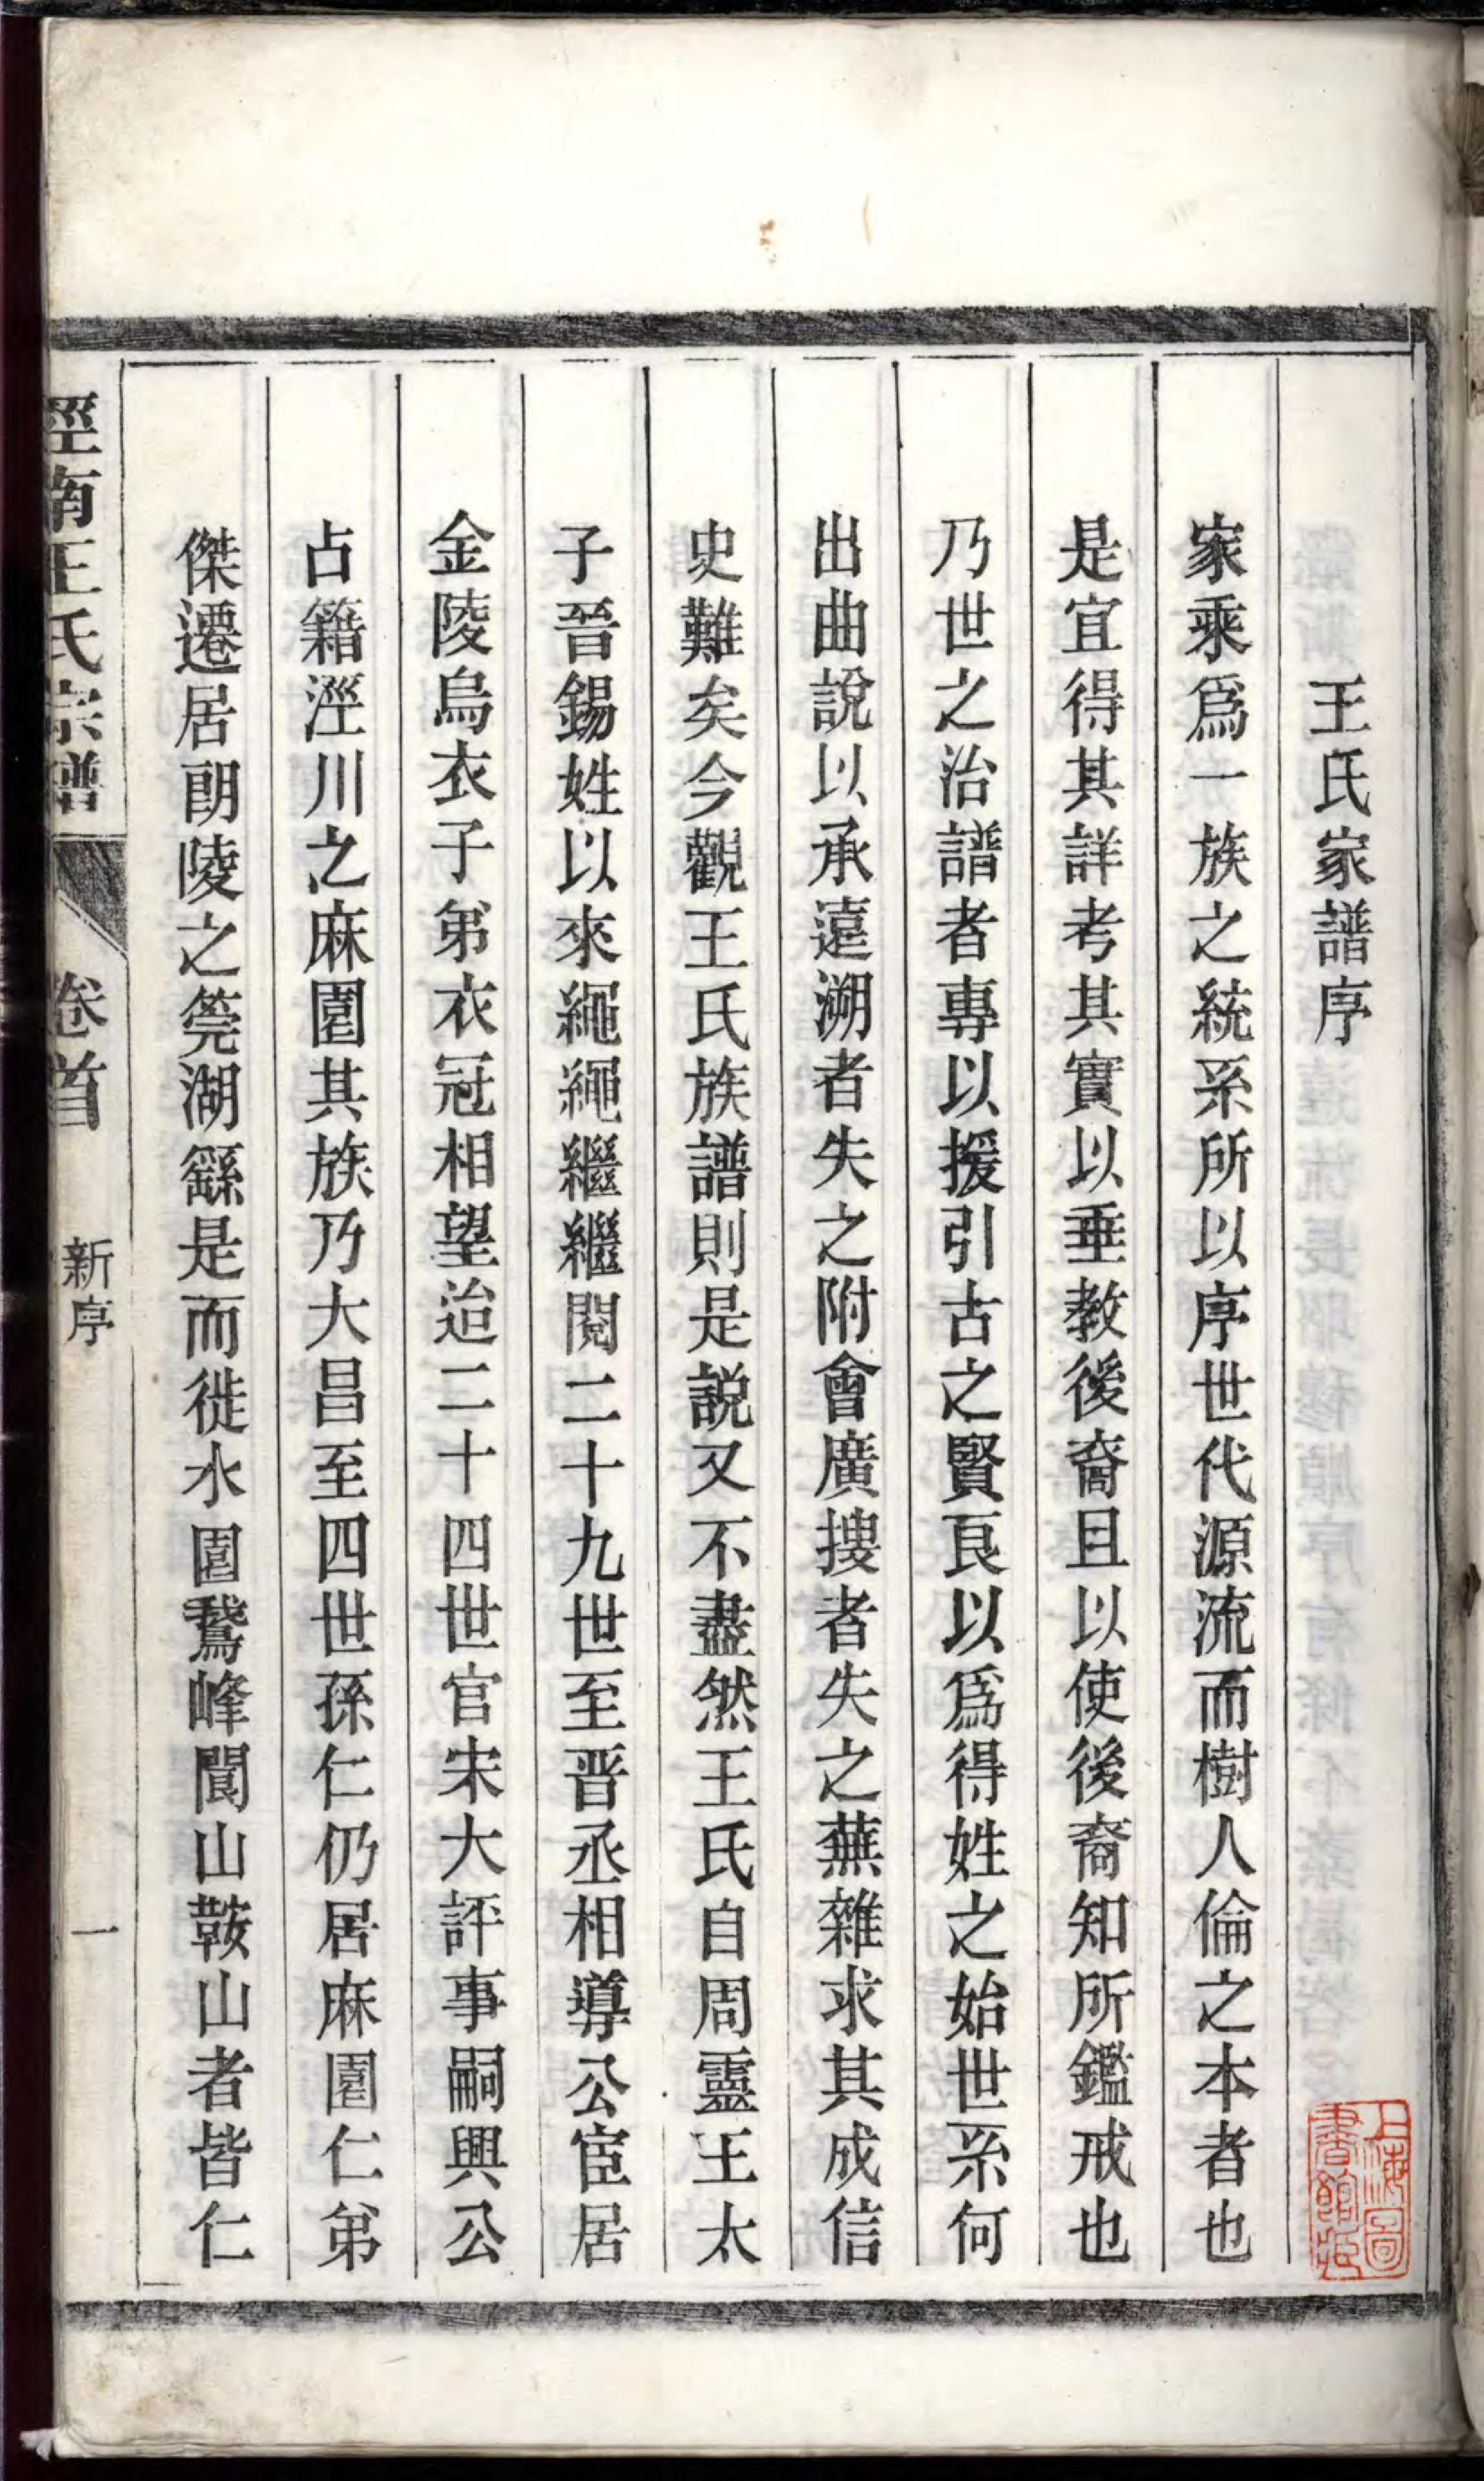 王氏家譜序
家乘爲一族之統系所以序世代源流而樹人倫之本者也
是宜得其詳考其實以垂教後裔且以使後裔知所鑑戒也
乃世之治譜者專以援引古之賢良以爲得姓之始世系何
出曲說以承遠溯者失之附會廣搜者失之蕪雜求其成信
史難矣今觀王氏族譜則是説又不盡然王氏自周靈王太
子晉錫姓以來繩繩繼繼閱二十九世至晋丞相導公宦居
金陵烏衣子弟衣冠相望迨二十四世官宋大評事嗣興公
占籍涇川之麻園其族乃大昌至四世孫仁仍居麻園仁弟
傑遷居朗陵之筦湖繇是而徙水園鵞峰閬山鞍山者皆仁
涇南王氏宗譜
卷首
新序
一
上海圖
書館藏